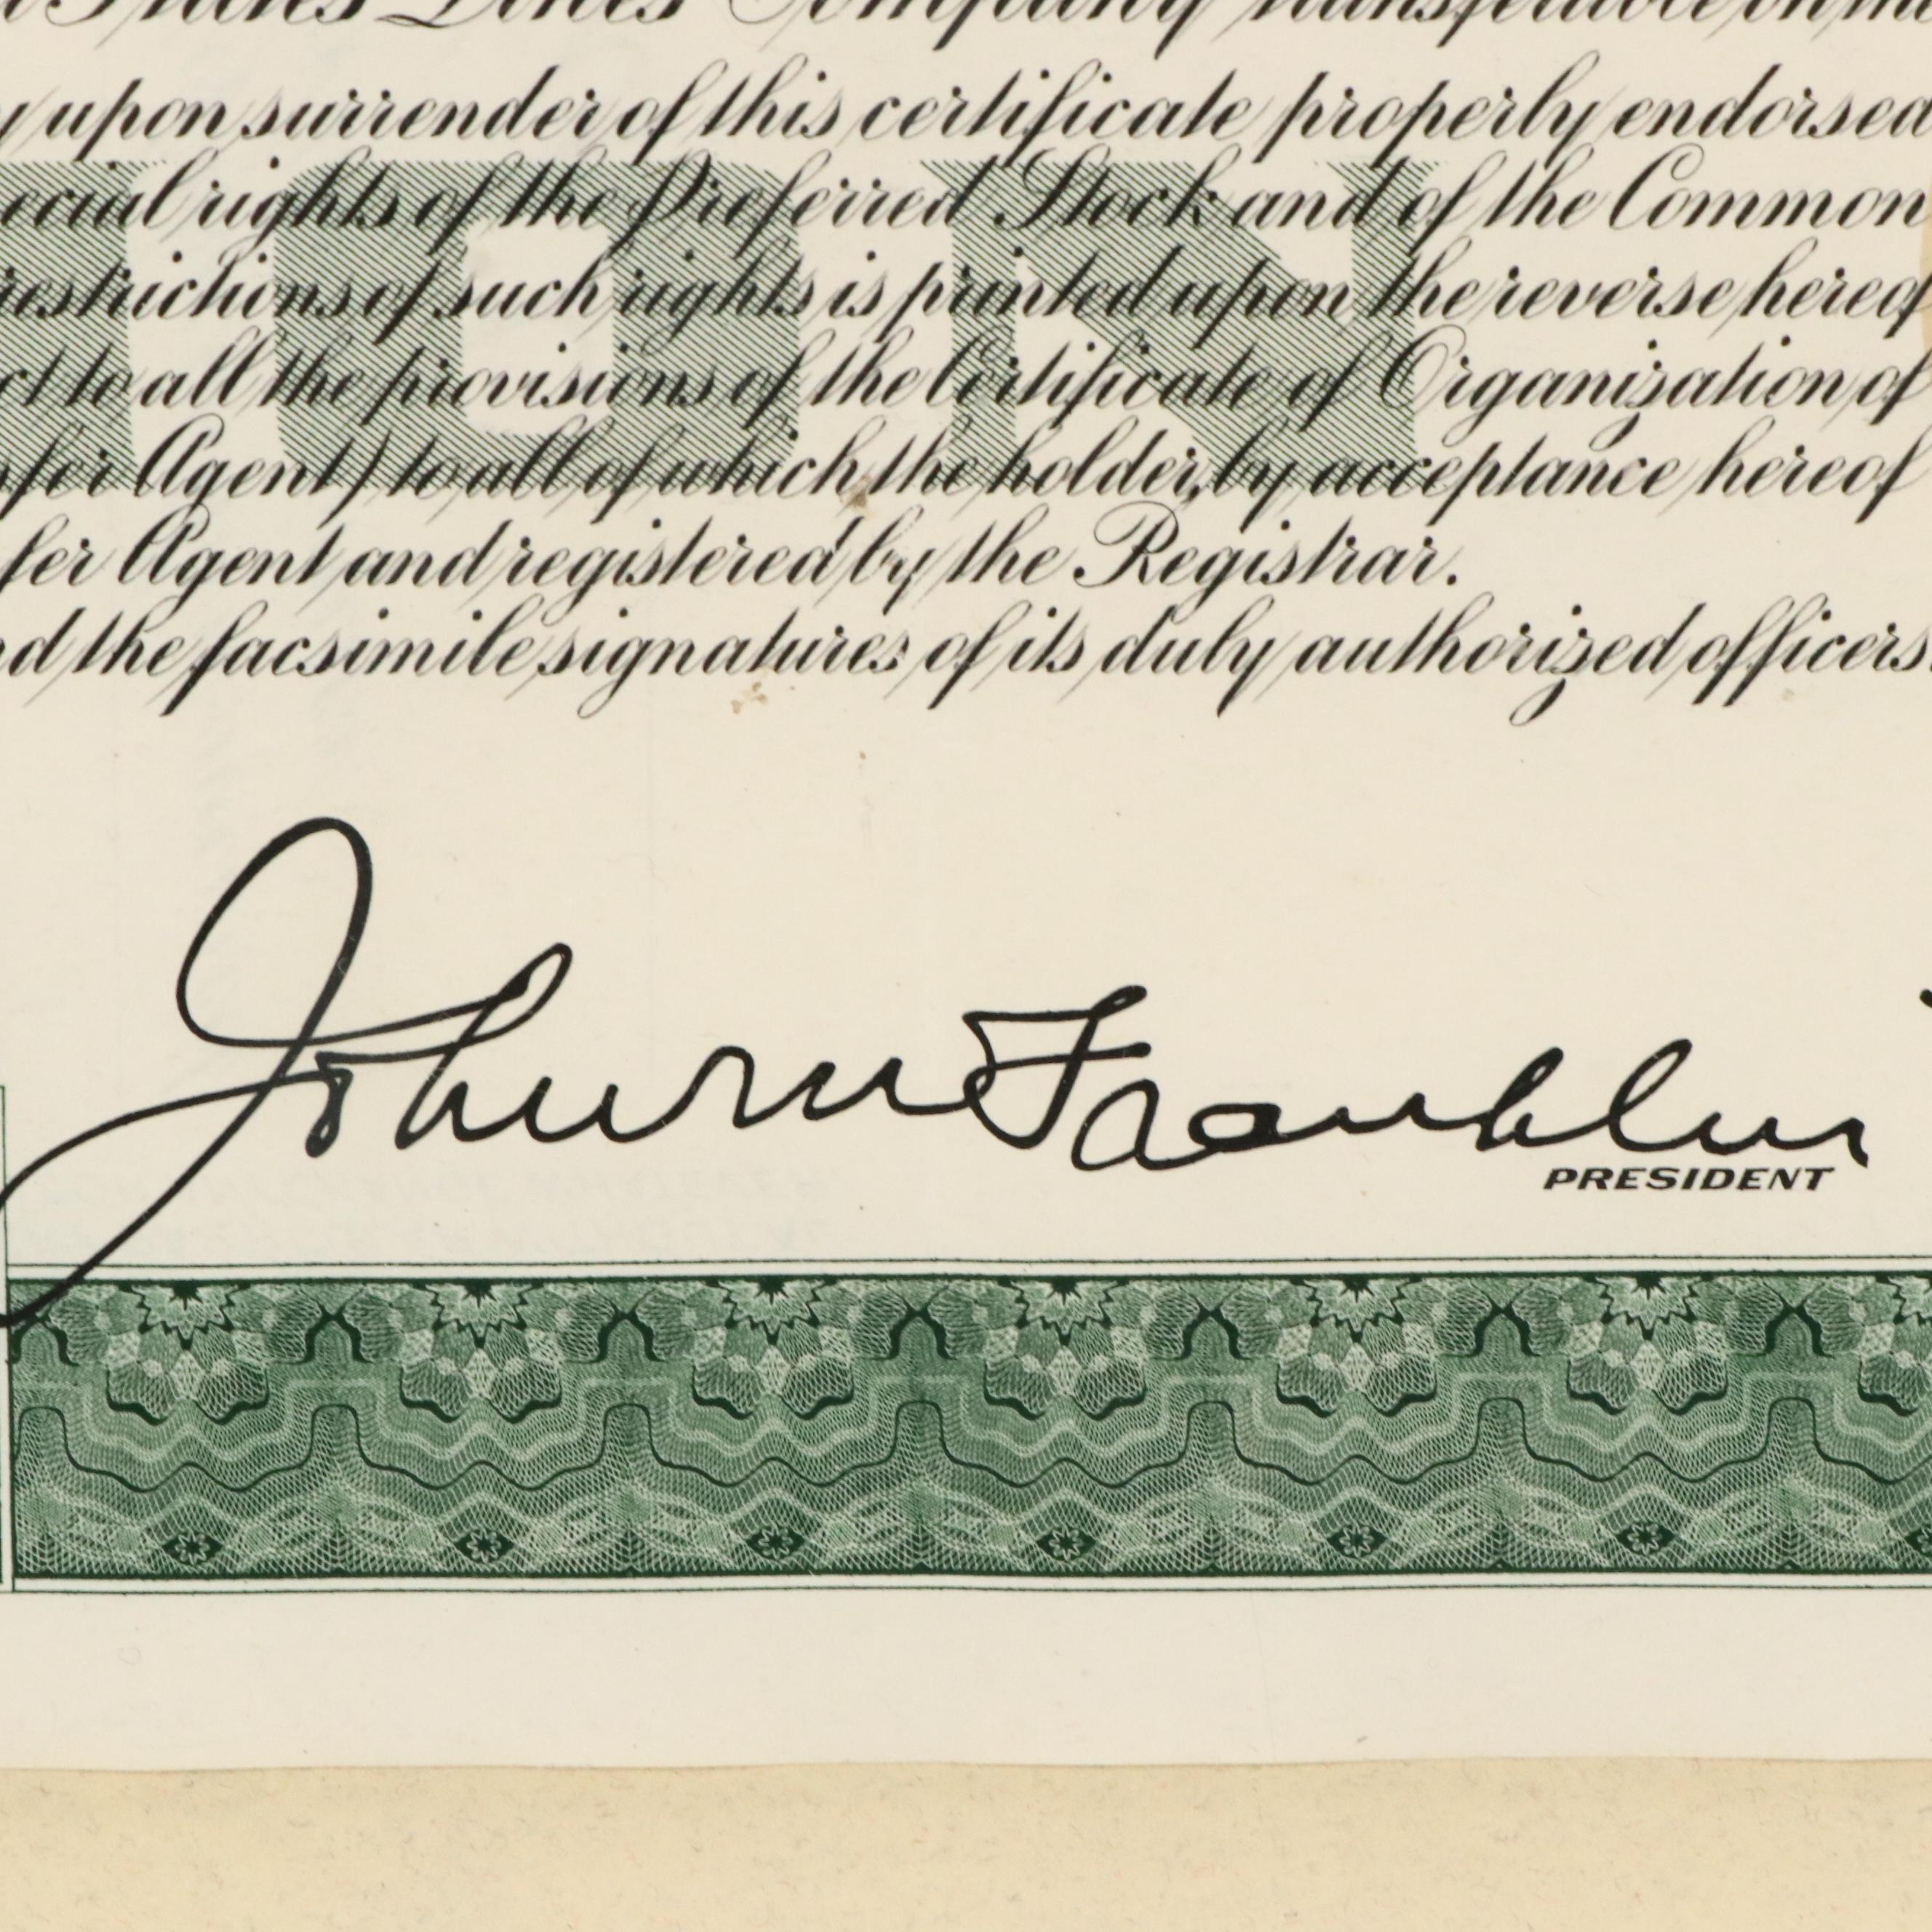 States Lines Company transferable on the
y upon surrender of this certificate properly endorsed
ecial rights of the Preferred Stock and of the Common
restrictions of such rights is printed upon the reverse hereof
ct to all the provisions of the Certificate of Organization of
sfer Agent) to all of which the holder, by acceptance hereof
fer Agent and registered by the Registrar.
nd the facsimile signatures of its duly authorized officers.
MON
John M Franklin
PRESIDENT